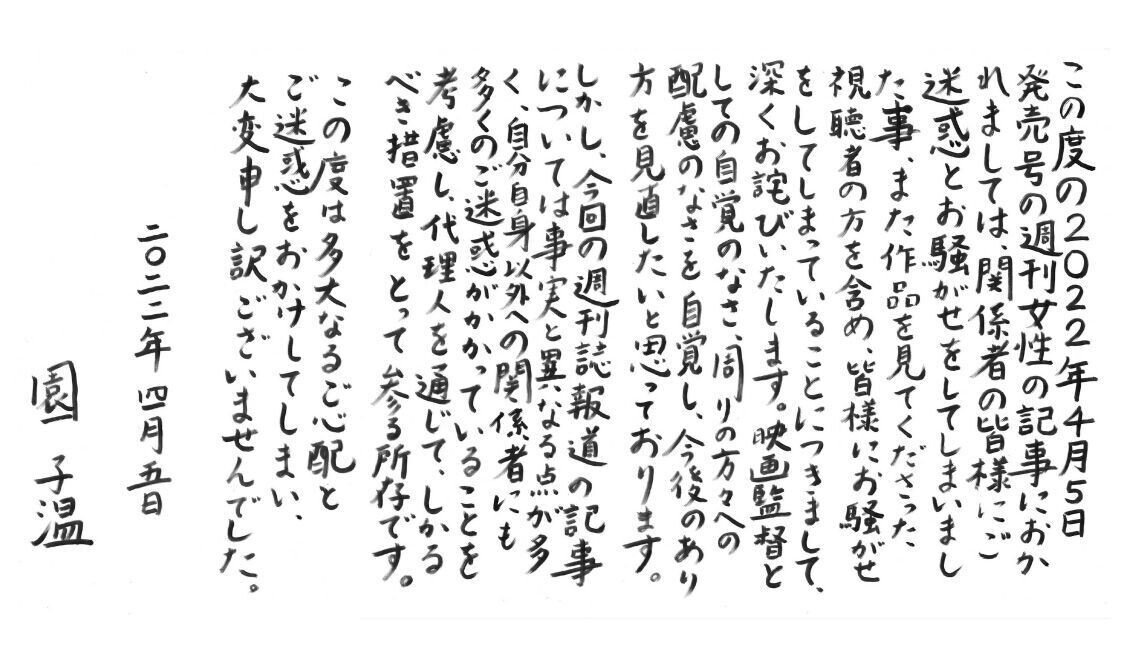 この度の2022年4月5日
発売号の週刊女性の記事におか
れましては、関係者の皆様にご
迷惑とお騒がせをしてしまいまし
た事、また作品を見てくださった
視聴者の方を含め、皆様にお騒がせ
をしてしまっていることにつきまして、
深くお詫びいたします。映画監督と
しての自覚のなさ、周りの方々への
配慮のなさを自覚し、今後のあり
方を見直したいと思っております。
しかし、今回の週刊誌報道の記事
については事実と異なる点が多
く、自分自身以外への関係者にも
多くのご迷惑がかかっていることを
考慮し、代理人を通じて、しかる
べき措置をとって参る所存です。
この度は多大なるご心配と
ご迷惑をおかけしてしまい、
大変申し訳ございませんでした。
二〇二二年 四月五日
園 子温